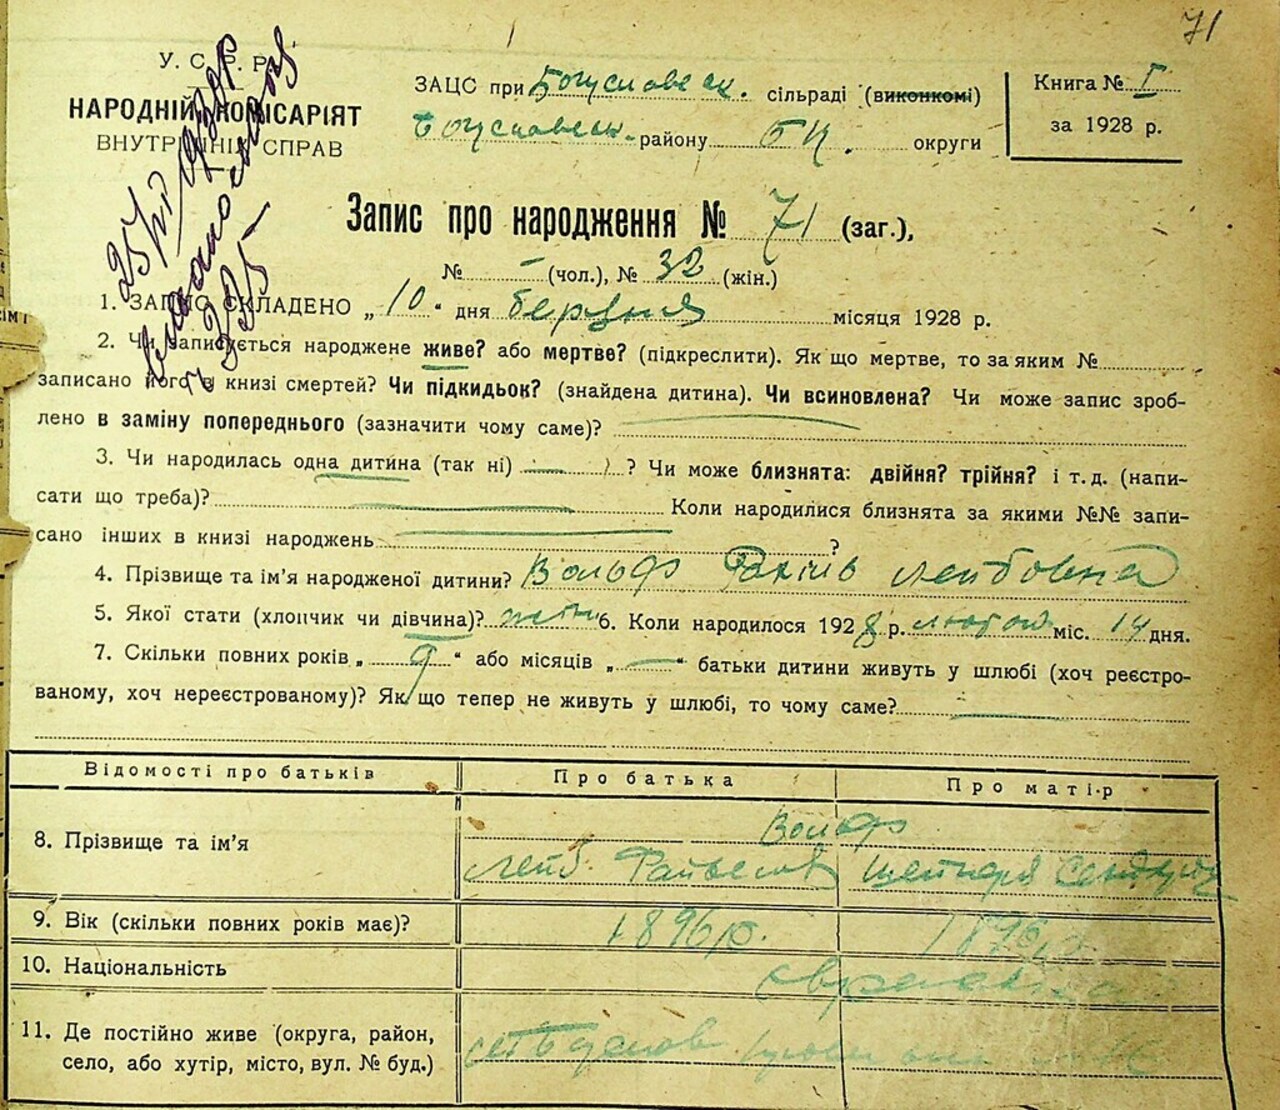 71
У. С. Р. Р.
НАРОДНІЙ КОМІСАРІЯТ
ВНУТРІШНІХ СПРАВ
ЗАЦС при Богуславск. сільраді (виконкомі)
Богуславск. району БЦ. округи
Книга № I
за 1928 р.
Запис про народження № 71 (заг.),
№ - (чол.), № 32 (жін.)
1. ЗАПИС СКЛАДЕНО „10“ дня березня місяця 1928 р.
2. Чи записується народжене живе? або мертве? (підкреслити). Як що мертве, то за яким №
записано його в книзі смертей? Чи підкидьок? (знайдена дитина). Чи всиновлена? Чи може запис зроб-
лено в заміну попереднього (зазначити чому саме)?
3. Чи народилась одна дитина (так ні) — ? Чи може близнята: двійня? трійня? і т. д. (напи-
сати що треба)? — Коли народилися близнята за якими №№ запи-
сано інших в книзі народжень — ?
4. Прізвище та ім'я народженої дитини? Вольф Рахіль Лейбовна
5. Якої стати (хлопчик чи дівчина)? жін 6. Коли народилося 1928 р. лютого міс. 14 дня.
7. Скільки повних років „9“ або місяців „—“ батьки дитини живуть у шлюбі (хоч реєстро-
ваному, хоч нереєстрованому)? Як що тепер не живуть у шлюбі, то чому саме? —
Відомості про батьків Про батька Про матір
8. Прізвище та ім'я Вольф
Лейб. Файвелев
9. Вік (скільки повних років має)? 1896 р. 1896 р.
10. Національність
11. Де постійно живе (округа, район,
село, або хутір, місто, вул. № буд.)